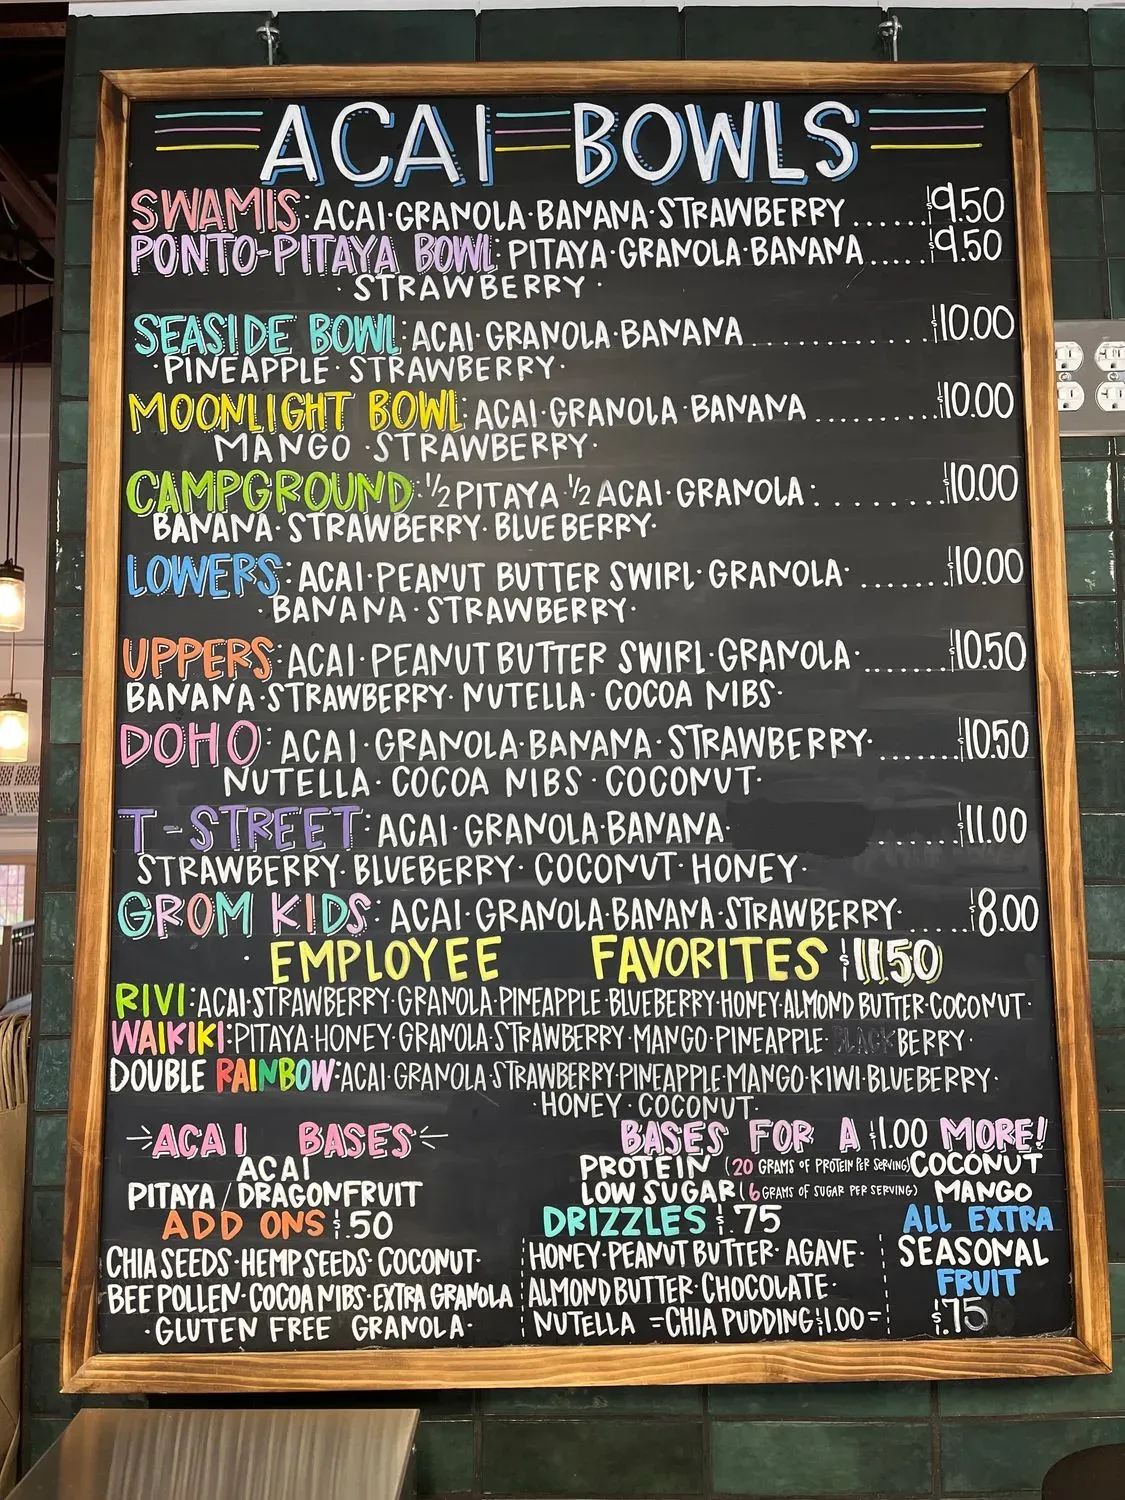 ACAI BOWLS
SWAMIS: ACAI·GRANOLA·BANANA·STRAWBERRY......$9.50
PONTO-PITAYA BOWL: PITAYA·GRANOLA·BANANA.....$9.50
·STRAWBERRY·
SEASIDE BOWL: ACAI·GRANOLA·BANANA..............$10.00
·PINEAPPLE·STRAWBERRY·
MOONLIGHT BOWL: ACAI·GRANOLA·BANANA..........$10.00
MANGO·STRAWBERRY·
CAMPGROUND: 1/2 PITAYA 1/2 ACAI·GRANOLA:.........$10.00
BANANA·STRAWBERRY·BLUEBERRY·
LOWERS: ACAI·PEANUT BUTTER SWIRL·GRANOLA·.......$10.00
·BANANA·STRAWBERRY·
UPPERS: ACAI·PEANUT BUTTER SWIRL·GRANOLA·.......$10.50
BANANA·STRAWBERRY·NUTELLA·COCOA NIBS·
DOHO: ACAI·GRANOLA·BANANA·STRAWBERRY·.......$10.50
NUTELLA·COCOA NIBS·COCONUT·
T-STREET: ACAI·GRANOLA·BANANA·.......$11.00
STRAWBERRY·BLUEBERRY·COCONUT·HONEY·
GROM KIDS: ACAI·GRANOLA·BANANA·STRAWBERRY·.....$8.00
·EMPLOYEE FAVORITES $11.50
RIVI: ACAI·STRAWBERRY·GRANOLA·PINEAPPLE·BLUEBERRY·HONEY·ALMOND BUTTER·COCONUT·
WAIKIKI: PITAYA·HONEY·GRANOLA·STRAWBERRY·MANGO·PINEAPPLE·BLACKBERRY·
DOUBLE RAINBOW: ACAI·GRANOLA·STRAWBERRY·PINEAPPLE·MANGO·KIWI·BLUEBERRY·
·HONEY·COCONUT·
ACAI BASES
ACAI
PITAYA/DRAGONFRUIT
BASES FOR A $1.00 MORE!
PROTEIN (20 GRAMS OF PROTEIN PER SERVING) COCONUT
LOW SUGAR (6 GRAMS OF SUGAR PER SERVING) MANGO
ADD ONS $.50
CHIA SEEDS·HEMP SEEDS·COCONUT·
BEE POLLEN·COCOA NIBS·EXTRA GRANOLA
·GLUTEN FREE GRANOLA·
DRIZZLES $.75
HONEY·PEANUT BUTTER·AGAVE·
ALMOND BUTTER·CHOCOLATE·
NUTELLA =CHIA PUDDING $1.00=
ALL EXTRA
SEASONAL
FRUIT
$.75